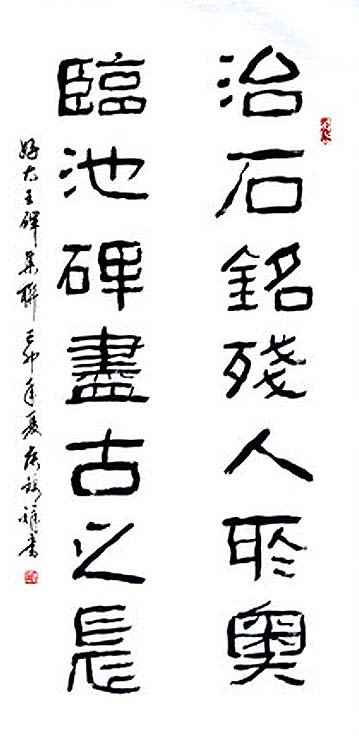 治石銘殘人聆奧
臨池碑盡古之長
好大王碑集聯 己卯年夏 書